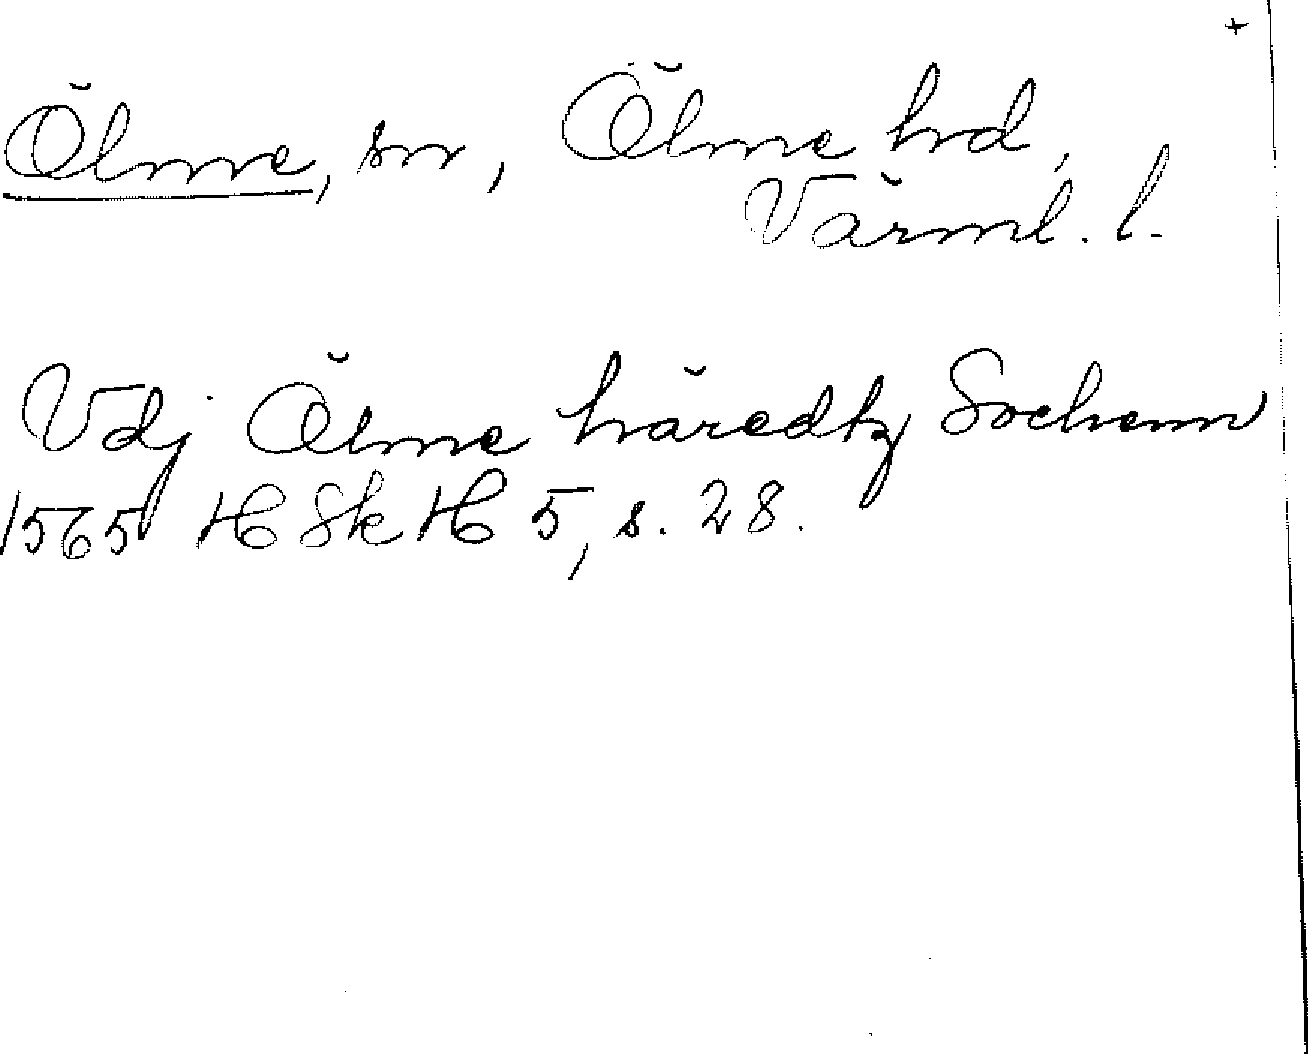 +
Ölme, sn, Ölme hrd,
Värml. l.
Vdj Ölme häredtz Sochenn
1565 HSkH 5, s. 28.